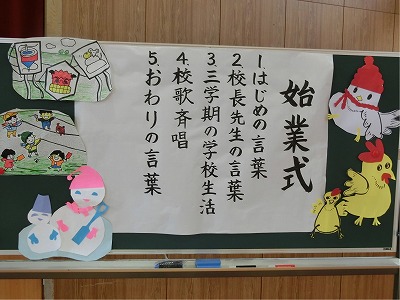 始業式
1はじめの言葉
2.校長先生の言葉
3.三学期の学校生活
4.校歌斉唱
5.おわりの言葉